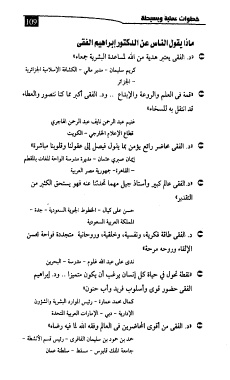 خطوات عملية وبسيطة
109
ماذا يقول الناس عن الدكتور إبراهيم الفقى
«د. الفقى يعتبر هدية من الله لمساعدة البشرية جمعاء»
كريم سليمان - مدير مالي - الكشافة الإسلامية الجزائرية
«قمة فى العلم والروعة والإبداع .. ود. الفقى أكبر مما كنا نتصور والعطاء
قد انتقل به للسخاء»
غنيم عبد الرحمن نايف عبد الرحمن الهاجري
قطاع الإعلام الخارجي - الكويت
«د. الفقى محاضر رائع يؤمن بما يقول فيصل إلى عقولنا وقلوبنا مباشرة»
إيمان صبري عثمان - مديرة مدرسة الواحة للغات بالمقطم
- القاهرة - جمهورية مصر العربية
«د. الفقى عالم كبير وأستاذ جيل مهما تحدثنا عنه فهو يستحق الكثير من
التقدير»
حسن على كيال - الخطوط الجوية السعودية - جدة -
المملكة العربية السعودية
«د. الفقى طاقة فكرية، ونفسية، وخلقية، وروحانية متجددة فواحة بحسن
الإلقاء وروحه مرحة»
ندى على عبد الله غلوم - مدرسة - البحرين
«نقطة تحول فى حياة كل إنسان يرغب أن يكون متميزا .. ود. إبراهيم
الفقى حضور قوى وأسلوب فريد وأب حنون»
كمال محمد عمارة - رئيس الموارد البشرية والشؤون
الإدارية - دبي - الإمارات العربية المتحدة
«د. الفقى من أقوى المحاضرين فى العالم وفقه الله لما فيه رضاه»
حمد بن حمود بن سليمان الغافري - رئيس قسم الأنشطة -
جامعة الملك قابوس - مسقط - سلطنة عمان